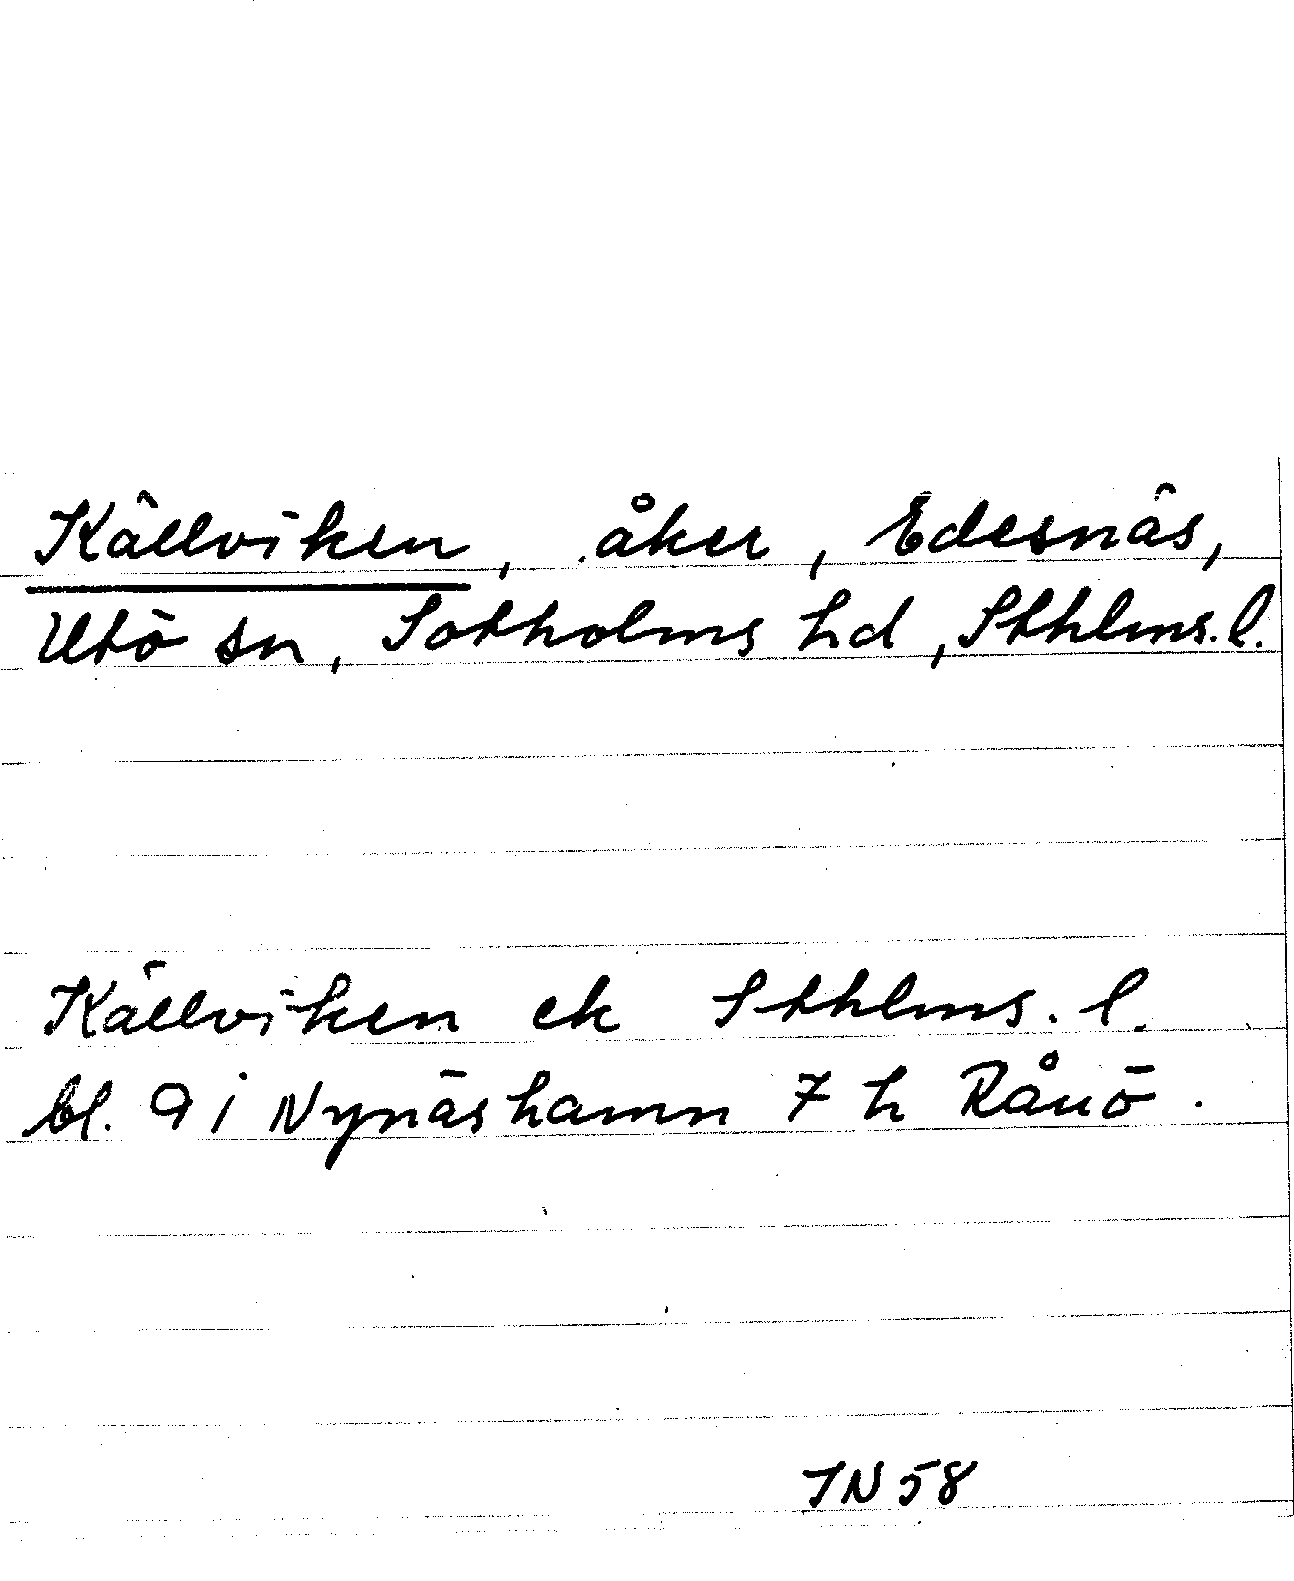 Källviken, åker, Edesnäs,
Utö sn, Sotholms hd, Sthlms. l.
Källviken ek Sthlms. l.
bl. 9 i Nynäshamn 7 h Rånö.
TN 58